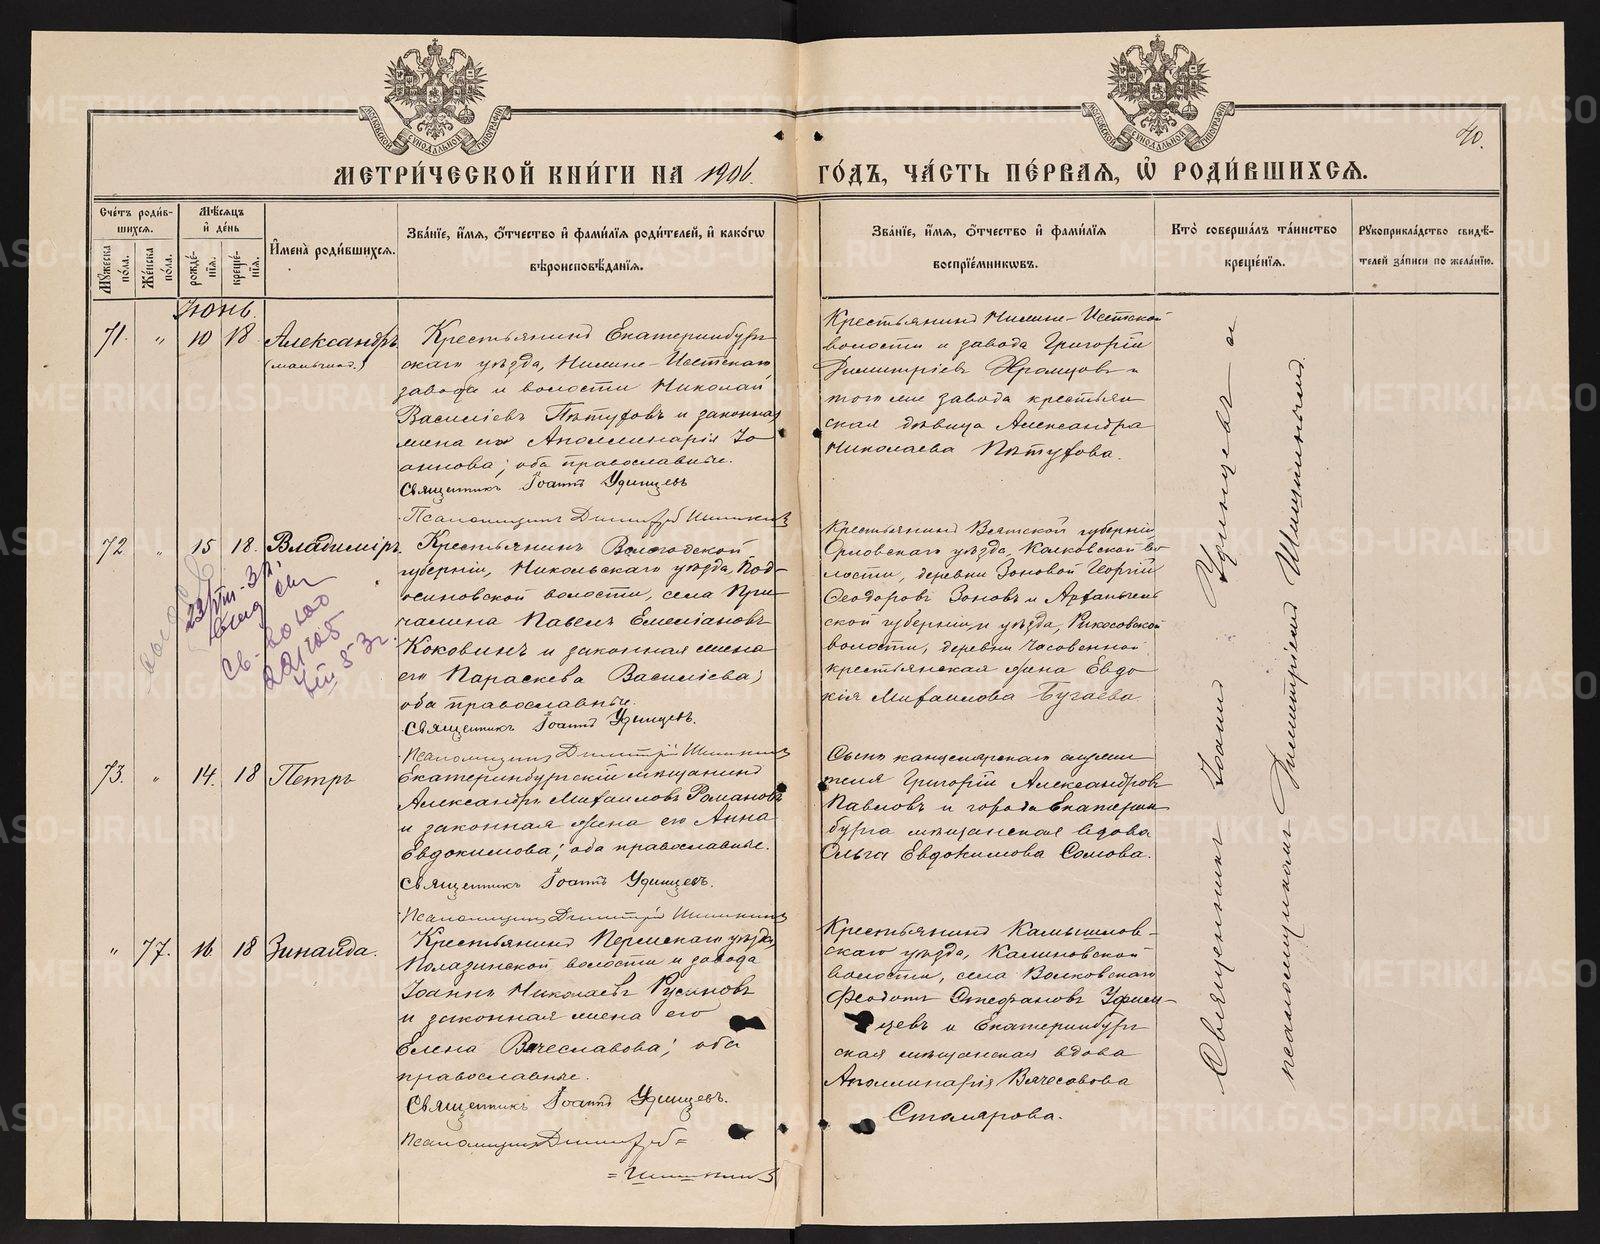 МОСКОВСКОЙ СУНОДАЛЬНОЙ ТИПОГРАФІИ
МОСКОВСКОЙ СУНОДАЛЬНОЙ ТИПОГРАФІИ
40.
МЕТРИ́ЧЕСКОЙ КНИ́ГИ НА 1906. ГО́ДЪ, ЧА́СТЬ ПЕ́РВАѦ, Ѡ҆ РОДИ́ВШИХСѦ.
Сче́тъ роди́в-
шихсѧ.
Мꙋжеска по́ла.
Же́нска по́ла.
Мѣ́сѧцъ
и҆ де́нь
рожде́-
нїѧ.
креще́-
нїѧ.
И҆мена̀ роди́вшихсѧ.
Зва́нїе, и҆́мѧ, ѻ҆́тчество и҆ фами́лїѧ роди́телей, и҆ како́гѡ
вѣроисповѣ́данїѧ.
Зва́нїе, и҆́мѧ, ѻ҆́тчество и҆ фами́лїѧ
воспрїе́мникѡвъ.
Кто̀ соверша́лъ та́инство
креще́нїѧ.
Рꙋкоприкла́дство свидѣ́-
телей за́писи по жела́нїю.
Іюнь.
71. " 10 18 Александръ
Крестьянинъ Екатеринбург
скаго уѣзда, Нижне-Исетскаго
завода и волости Николай
Василіевъ Пѣтуховъ и законная
жена его Аполлинарія Іо
аннова; оба православные.
Священникъ Іоаннъ Удинцевъ
Псаломщикъ Димитрій Шишкинъ
Крестьянинъ Нижне-Исетской
волости и завода Григорій
Димитріевъ Храмцовъ и
того же завода крестьян
ская дѣвица Александра
Николаева Пѣтухова.
72 " 15 18. Владиміръ.
Крестьянинъ Вологодской
губерніи, Никольскаго уѣзда, Под-
осиновской волости, села При-
чалина Павелъ Емеліановъ
Коковинъ и законная жена
его Параскева Василіева;
оба православные.
Священникъ Іоаннъ Удинцевъ.
Псаломщикъ Димитрій Шишкинъ
Крестьянинъ Вятской губерніи,
Орловскаго уѣзда, во
лости, деревни Зоновой Георгій
Ѳеодоровъ Зоновъ и Архангель
ской губерніи и уѣзда, Рикосовской
волости, деревни Часовенной
крестьянская жена Евдо
кія Михаилова Бугаева.
73. " 14. 18 Петръ
Екатеринбургскій мѣщанинъ
Александръ Михаиловъ Романовъ
и законная жена его Анна
Евдокимова; оба православные.
Священникъ Іоаннъ Удинцевъ.
Псаломщикъ Димитрій Шишкинъ
Сынъ канцелярскаго служи
теля Григорій Александровъ
Павловъ и города Екатерин
бурга мѣщанская вдова
Ольга Евдокимова Сомова.
" 77. 16. 18 Зинаида.
Крестьянинъ Пермскаго уѣзда,
Полазинской волости и завода
Іоаннъ Николаевъ Русиновъ
и законная жена его
Елена Вячеславова; оба
православные.
Священникъ Іоаннъ Удинцевъ.
Псаломщикъ Димитрій =
= Шишкинъ
Крестьянинъ Камышлов-
скаго уѣзда, Калиновской
волости, села Волковскаго
Ѳеодотъ Стефановъ Уфим-
цевъ и Екатеринбург
ская мѣщанская вдова
Аполлинарія Вячеславова
Столярова.
Священникъ Іоаннъ Удинцевъ и
псаломщикъ Димитрій Шишкинъ.
METRIKI.GASO-URAL.RU